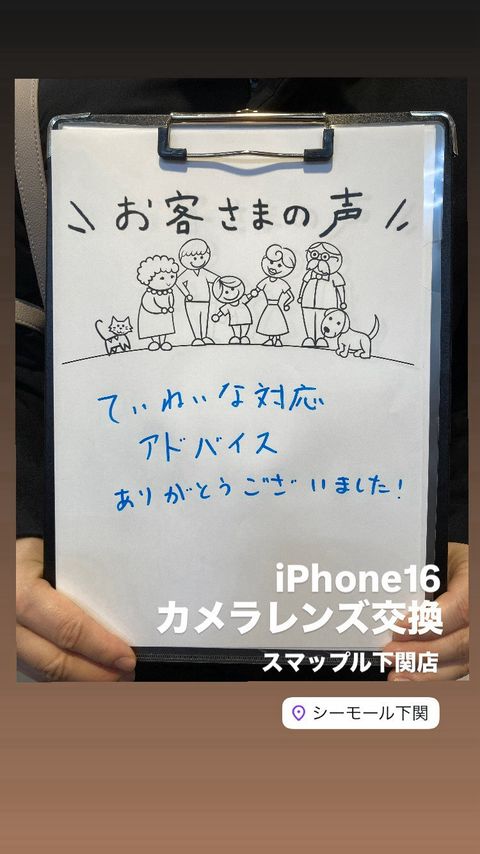 お客さまの声
ていねいな対応
アドバイス
ありがとうございました!
iPhone16
カメラレンズ交換
スマップル下関店
シーモール下関